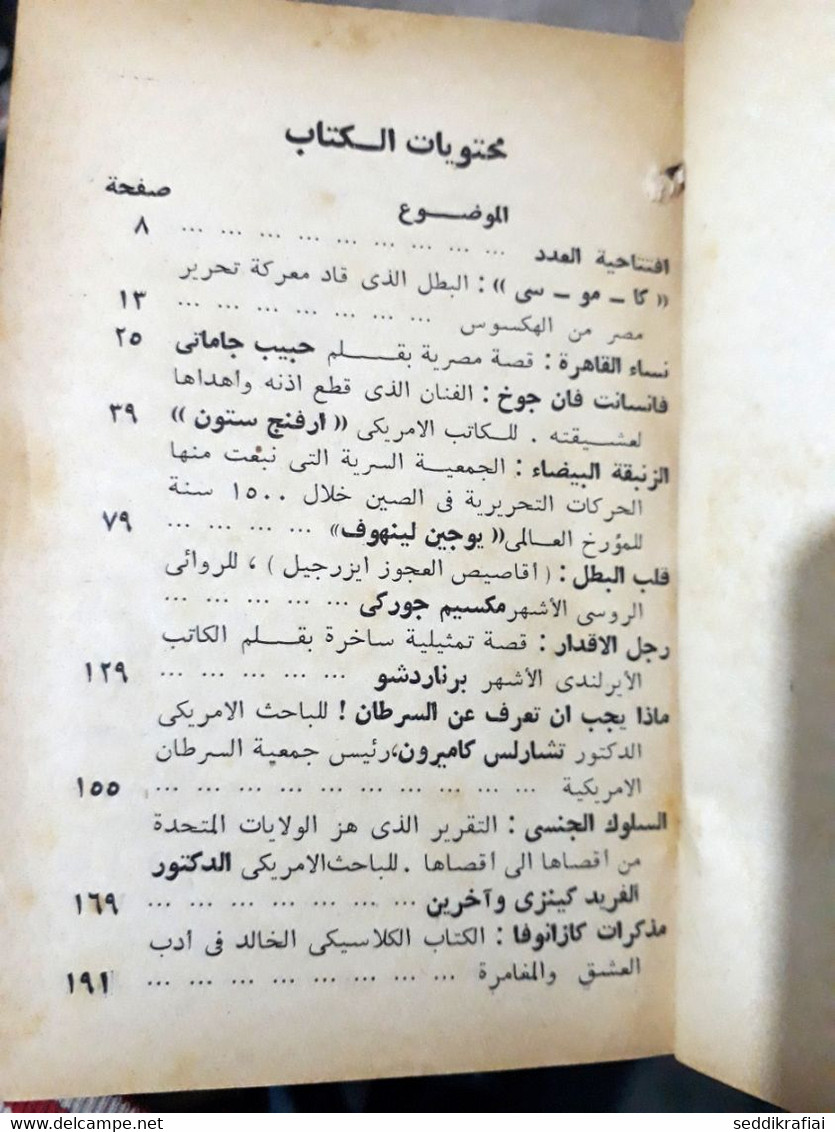 محتويات الـكتاب
الموضـــوع صفحة
افتتاحية العدد ... ... ... ... ... ... ... ... ... ٨
«كا ـ مو ـ سى» : البطل الذى قاد معركة تحرير
مصر من الهكسوس ... ... ... ... ... ... ... ١٣
نساء القاهرة : قصة مصرية بقـــلم حبيب جاماتى ٢٥
فانسانت فان جوخ : الفنان الذى قطع اذنه واهداها
لعشيقته . للكاتب الامريكى «ارفنج ستون» ٣٩
الزنبقة البيضاء : الجمعيـة السرية التى نبغت منها
الحركات التحريرية فى الصين خلال ١٥٠٠ سنة
للمؤرخ العـالمى«يوجين لينهوف» ... ... ... ... ٧٩
قلب البطل : ( أقاصيص العجوز ايزرجيل ) ، للروائى
الروسى الأشهر مكسيم جوركى ... ... ... ... ...
رجل الاقدار : قصة تمثيلية ساخرة بقــلم الكاتب
الأيرلندى الأشهر برناردشو ... ... ... ... ... ١٢٩
ماذا يجب ان تعرف عن السرطان ! للباحث الامريكى
الدكتور تشارلس كاميرون،رئيس جمعية السرطان
الامريكية ... ... ... ... ... ... ... ... ... ... ١٥٥
السلوك الجنسى : التقرير الذى هز الولايات المتحدة
من أقصاها الى أقصاها . للباحث الامريكى الدكتور
الفريد كينزى وآخرين ... ... ... ... ... ... ... ١٦٩
مذكرات كازانوفا : الكتاب الكلاسيكى الخالد فى أدب
العشق والمغامرة ... ... ... ... ... ... ... ... ١٩١
seddikrafiai